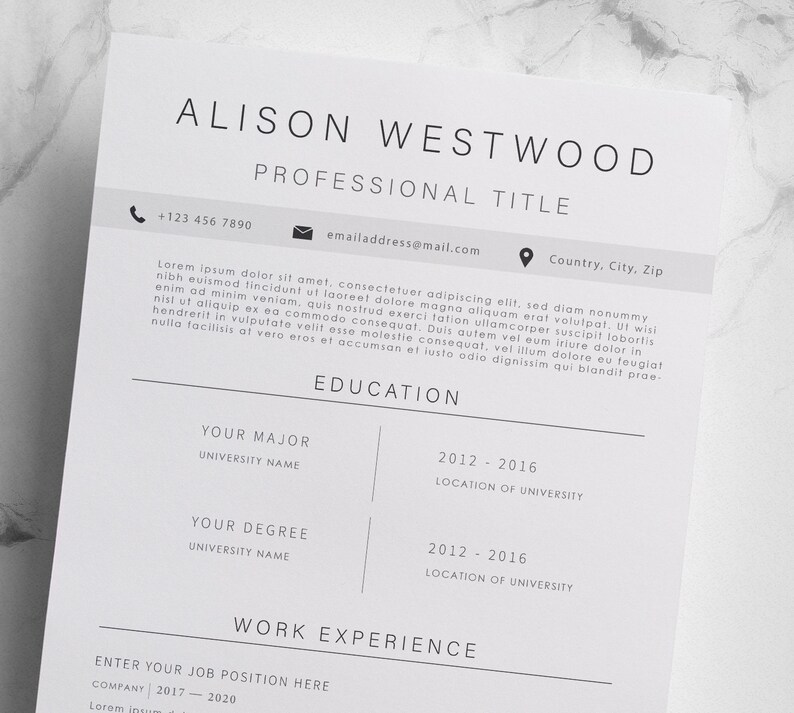 ALISON WESTWOOD
PROFESSIONAL TITLE
+123 456 7890 emailaddress@mail.com Country, City, Zip
Lorem ipsum dolor sit amet, consectetuer adipiscing elit, sed diam nonummy
nibh euismod tincidunt ut laoreet dolore magna aliquam erat volutpat. Ut wisi
enim ad minim veniam, quis nostrud exerci tation ullamcorper suscipit lobortis
nisl ut aliquip ex ea commodo consequat. Duis autem vel eum iriure dolor in
hendrerit in vulputate velit esse molestie consequat, vel illum dolore eu feugiat
nulla facilisis at vero eros et accumsan et iusto odio dignissim qui blandit prae-
EDUCATION
YOUR MAJOR
UNIVERSITY NAME
2012 - 2016
LOCATION OF UNIVERSITY
YOUR DEGREE
UNIVERSITY NAME
2012 - 2016
LOCATION OF UNIVERSITY
WORK EXPERIENCE
ENTER YOUR JOB POSITION HERE
COMPANY | 2017 — 2020
Lorem ipsum